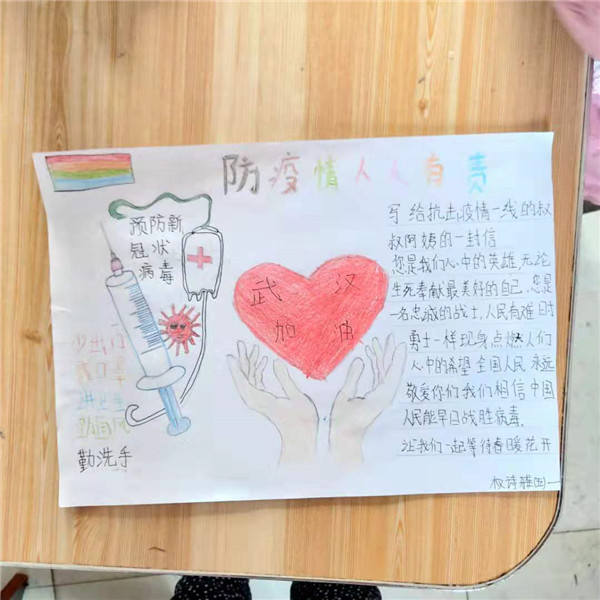 防疫情人人有责
预防新
冠状
病毒
武汉
加油
少出门
戴口罩
讲卫生
勤洗手
写给抗击疫情一线的叔
叔阿姨的一封信
您是我们心中的英雄,无论
生死奉献最美好的自己.您是
一名忠诚的战士,人民有难时
勇士一样现身点燃人们
心中的希望全国人民永远
敬爱你们我们相信中国
人民能早日战胜病毒.
让我们一起等待春暖花开